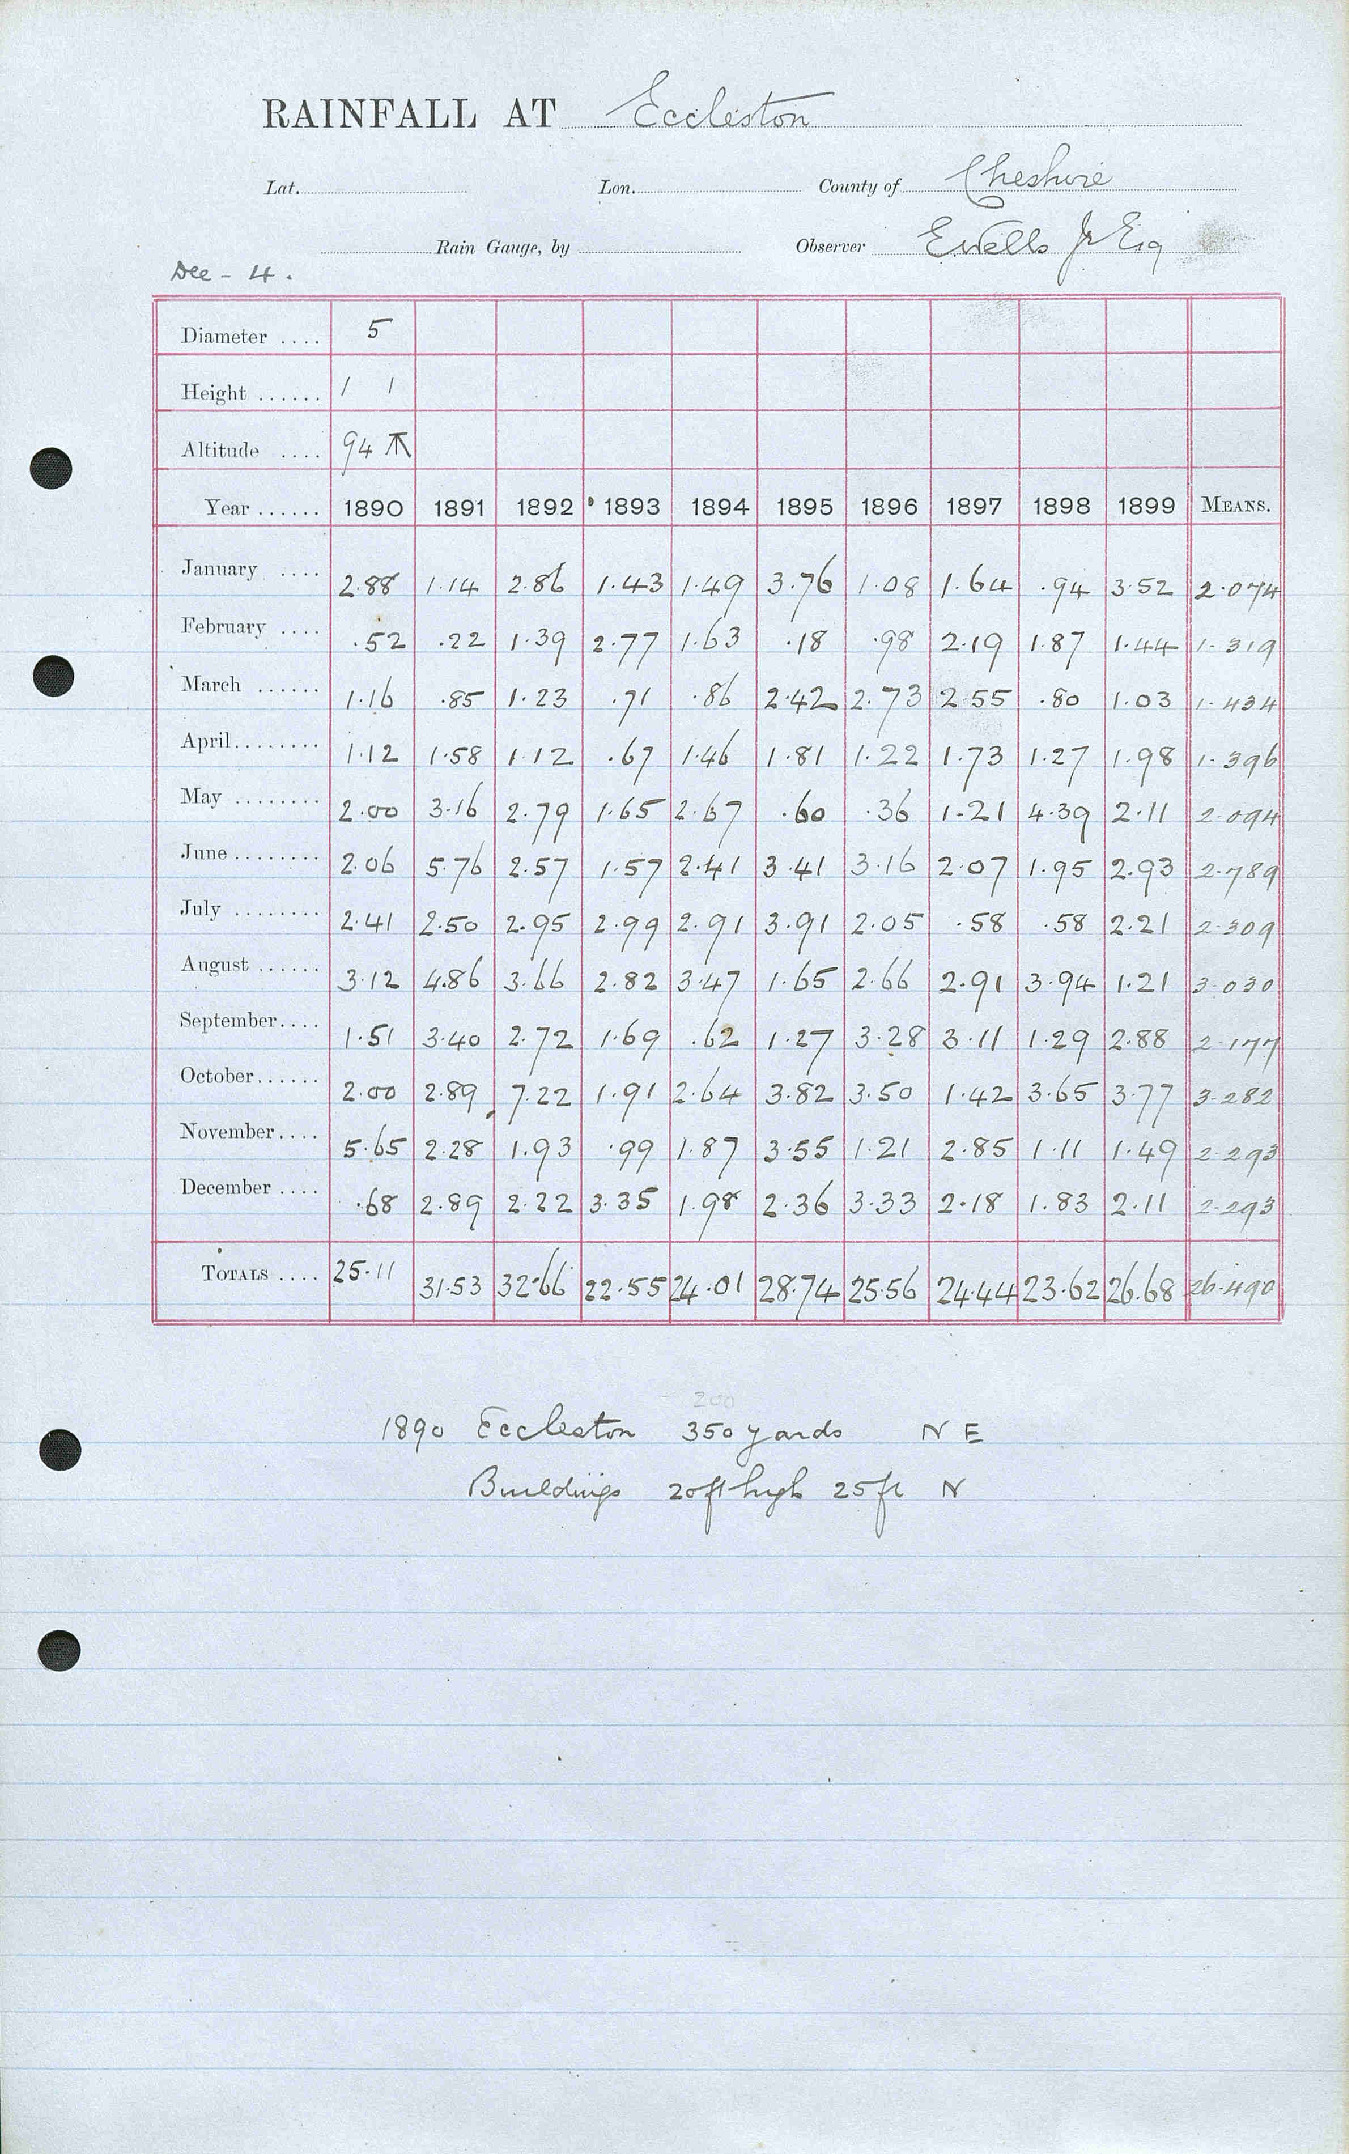 RAINFALL AT Eccleston
Lat. Lon. County of Cheshire
Rain Gauge, by Observer E Wells Jr Esq
Dee - 4.
Diameter .... 5
Height ...... 1 1
Altitude .... 94
Year ...... 1890 1891 1892 1893 1894 1895 1896 1897 1898 1899 MEANS.
January .... 2.88 1.14 2.86 1.43 1.49 3.76 1.08 1.64 .94 3.52 2.074
February .... .52 .22 1.39 2.77 1.63 .18 .98 2.19 1.87 1.44 1.319
March ...... 1.16 .85 1.23 .71 .86 2.42 2.73 2.55 .80 1.03 1.434
April........ 1.12 1.58 1.12 .67 1.46 1.81 1.22 1.73 1.27 1.98 1.396
May ........ 2.00 3.16 2.79 1.65 2.67 .60 .36 1.21 4.39 2.11 2.094
June ........ 2.06 5.76 2.57 1.57 2.41 3.41 3.16 2.07 1.95 2.93 2.789
July ........ 2.41 2.50 2.95 2.99 2.91 3.91 2.05 .58 .58 2.21 2.309
August ...... 3.12 4.86 3.66 2.82 3.47 1.65 2.66 2.91 3.94 1.21 3.030
September.... 1.51 3.40 2.72 1.69 .62 1.27 3.28 3.11 1.29 2.88 2.177
October...... 2.00 2.89 7.22 1.91 2.64 3.82 3.50 1.42 3.65 3.77 3.282
November.... 5.65 2.28 1.93 .99 1.87 3.55 1.21 2.85 1.11 1.49 2.293
December .... .68 2.89 2.22 3.35 1.98 2.36 3.33 2.18 1.83 2.11 2.293
TOTALS .... 25.11 31.53 32.66 22.55 24.01 28.74 25.56 24.44 23.62 26.68 26.490
200
1890 Eccleston 350 yards N E
Buildings 20ft high 25ft N